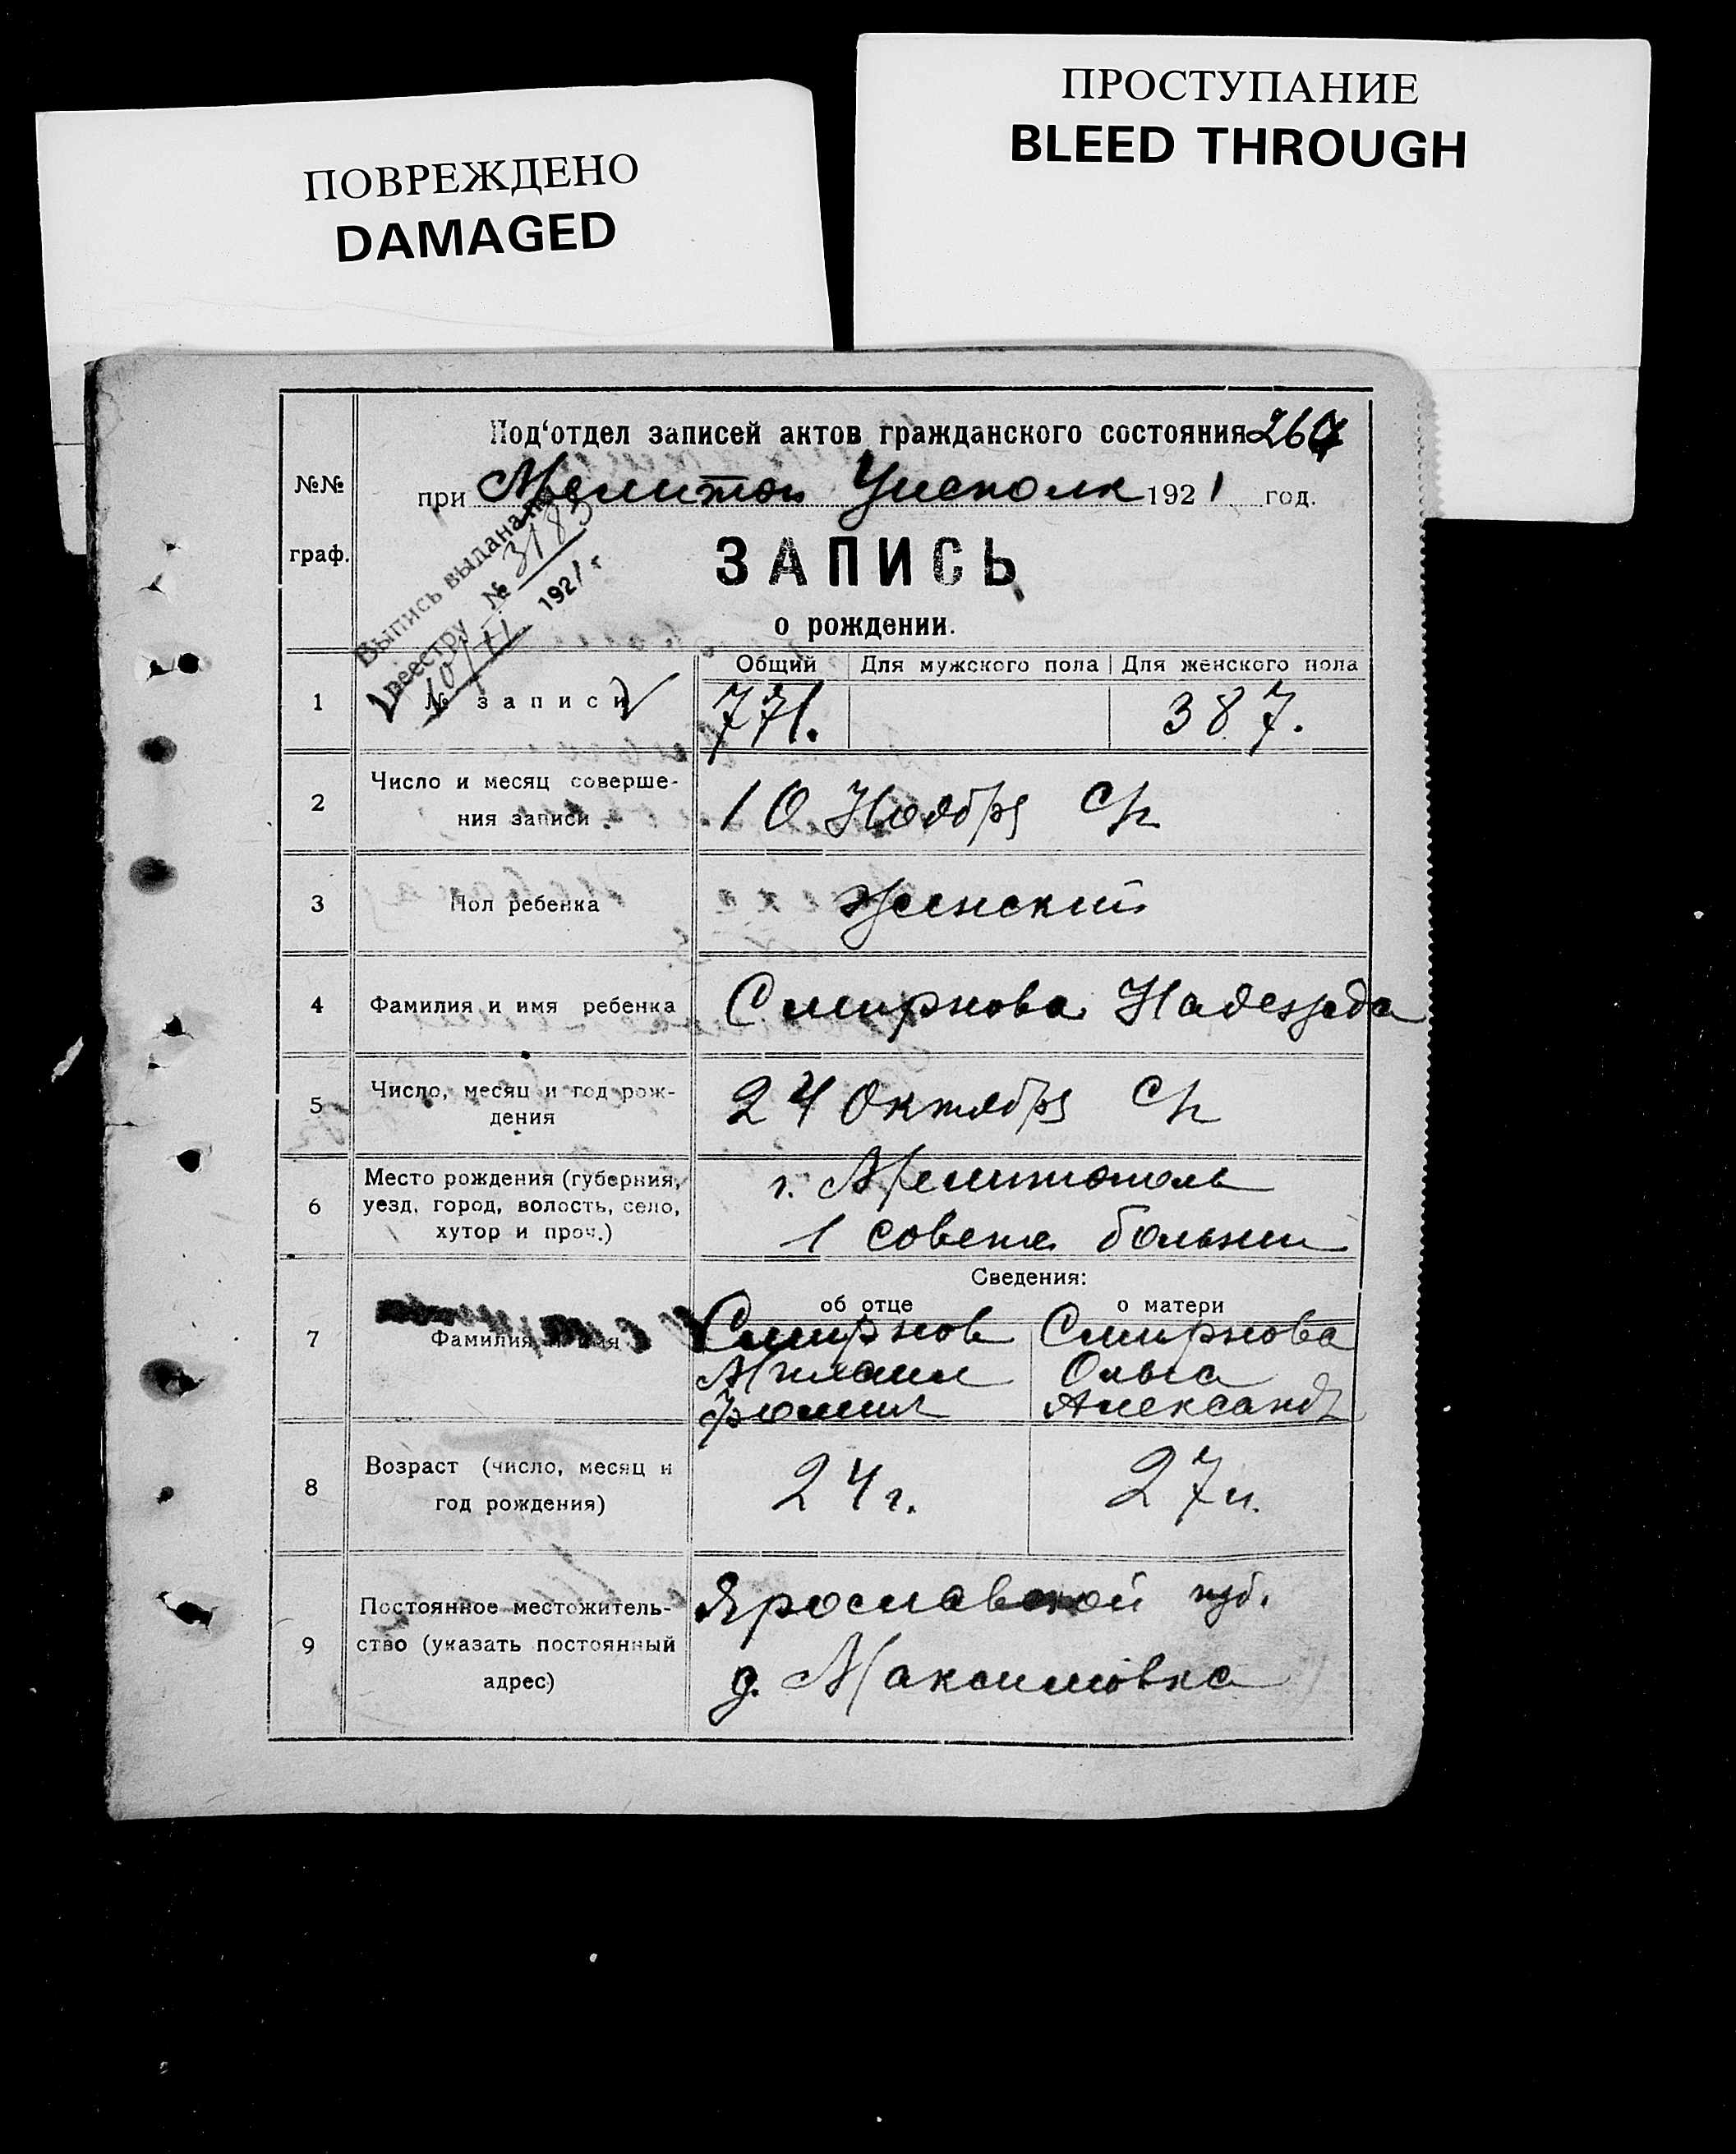 ПОВРЕЖДЕНО
DAMAGED
ПРОСТУПАНИЕ
BLEED THROUGH
Под‘отдел записей актов гражданского состояния
№№ граф.
при Мелитоп Уисполк 1921 год.
Выпись выдана по
реестру № 3183
10/XI 1921 г
ЗАПИСЬ
о рождении.
Общий Для мужского пола Для женского пола
1 № записи 771. 387.
2 Число и месяц соверше-
ния записи 10 Ноября с/г
3 Пол ребенка женский
4 Фамилия и имя ребенка Смирнова Надежда
5 Число, месяц и год рож-
дения 24 Октября с/г
6 Место рождения (губерния,
уезд, город, волость, село,
хутор и проч.)
г. Мелитополь
1 советс больни
Сведения:
об отце о матери
7 Фамилия
Смирнов Смирнова
Ольга
Александ
8 Возраст (число, месяц и
год рождения) 24 г. 27 л.
9 Постоянное местожитель-
ство (указать постоянный
адрес)
Ярославской губ.
д. Максимовка